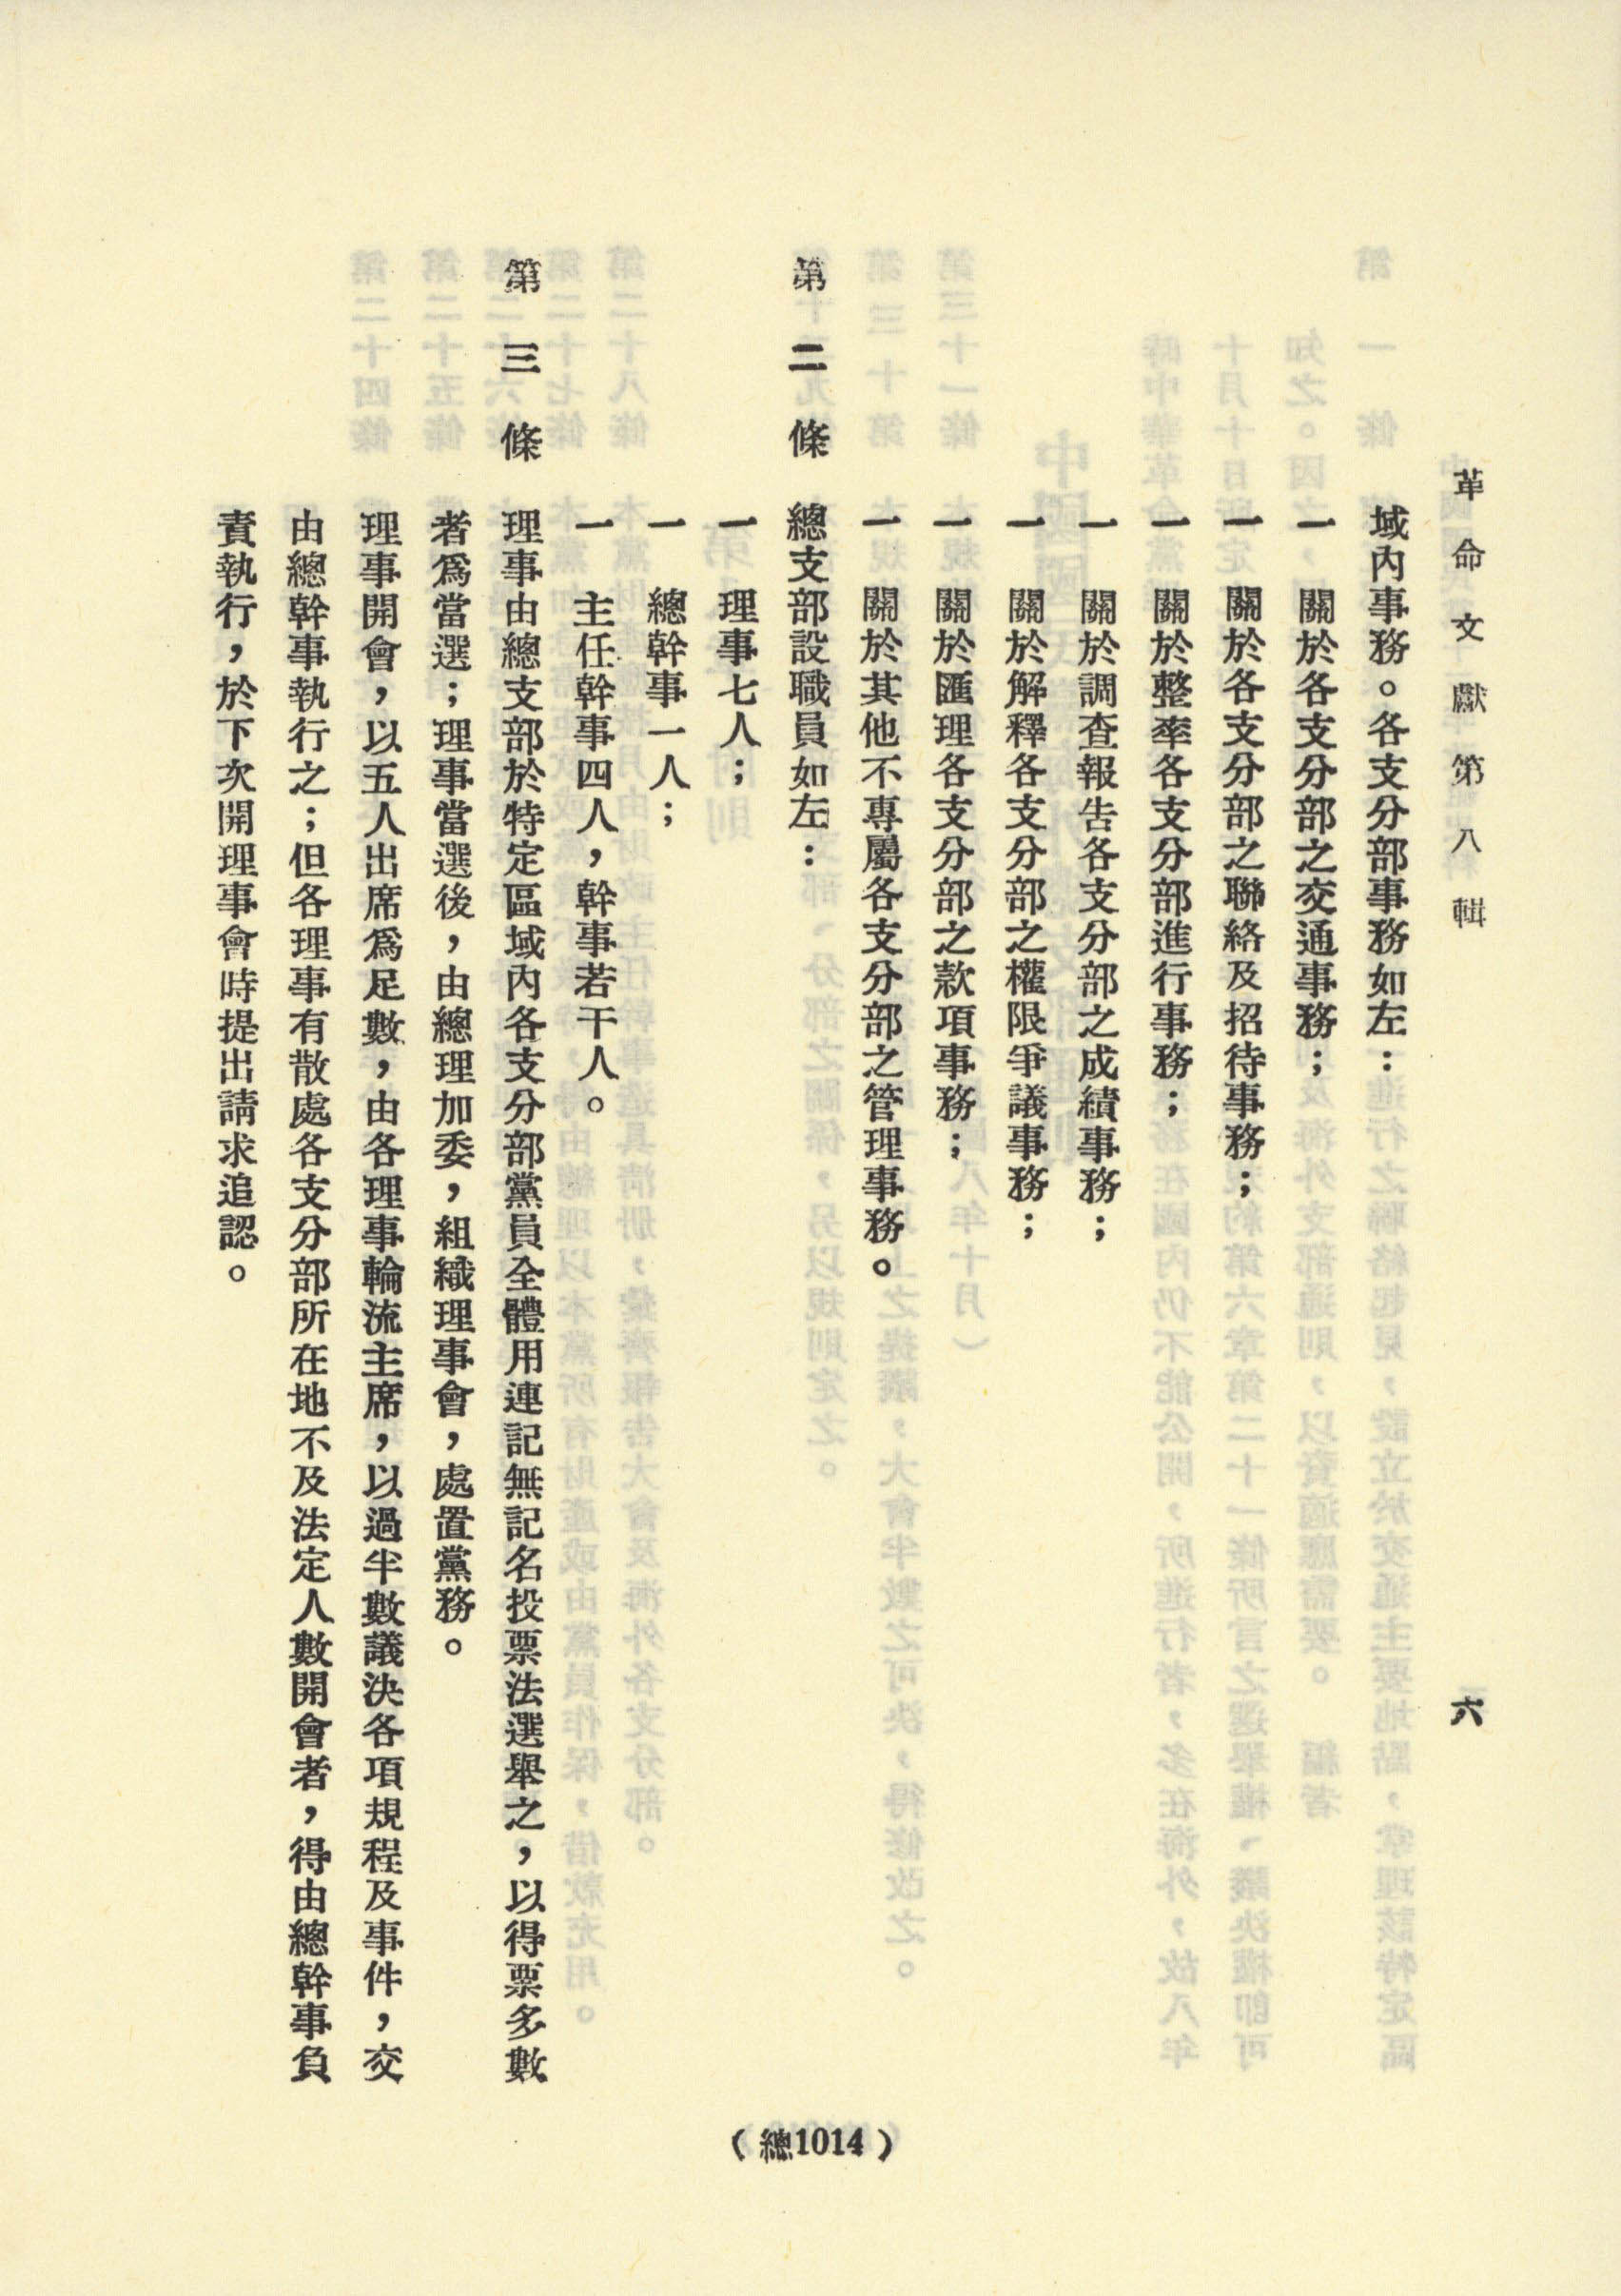 革命文獻第八輯
六
域內事務。各支分部事務如左：
一　關於各支分部之交通事務；
一　關於各支分部之聯絡及招待事務；
一　關於整率各支分部進行事務；
一　關於調查報告各支分部之成績事務；
一　關於解釋各支分部之權限爭議事務；
一　關於匯理各支分部之款項事務；
一　關於其他不專屬各支分部之管理事務。
第二條　總支部設職員如左：
一　理事七人；
一　總幹事一人；
一　主任幹事四人，幹事若干人。
第三條　理事由總支部於特定區域內各支分部黨員全體用連記無記名投票法選舉之，以得票多數
者爲當選；理事當選後，由總理加委，組織理事會，處置黨務。
理事開會，以五人出席爲足數，由各理事輪流主席，以過半數議決各項規程及事件，交
由總幹事執行之；但各理事有散處各支分部所在地不及法定人數開會者，得由總幹事負
責執行，於下次開理事會時提出請求追認。
（總1014）